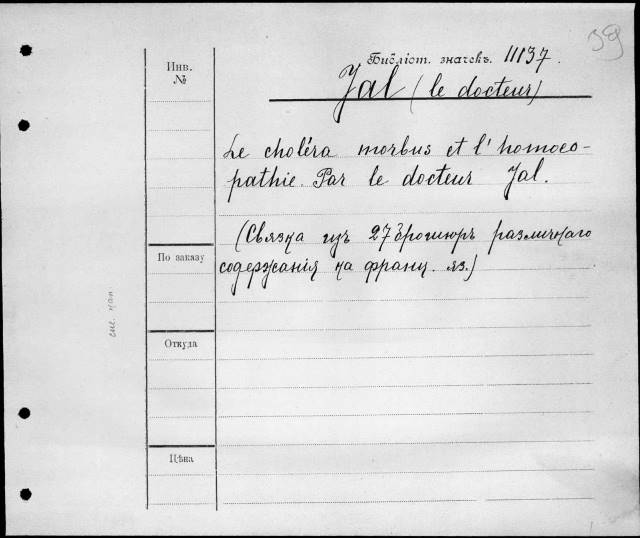 39
Инв.
№
Библіот. значекъ. 11137.
Jal (le docteur)
Le choléra morbus et l'homoeo-
pathie. Par le docteur Jal.
(Связка изъ 27 брошюръ различнаго
содержанія на франц. яз.)
По заказу
Откуда
Цѣна